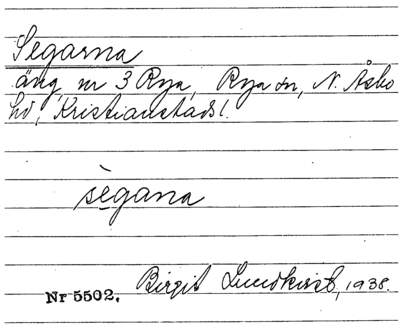 Segarna
äng, nr 3 Rya, Rya sn, N. Åsbo
hd, Kristianstads l.
sègana
Nr 5502. Birgit Lundkvist, 1938.